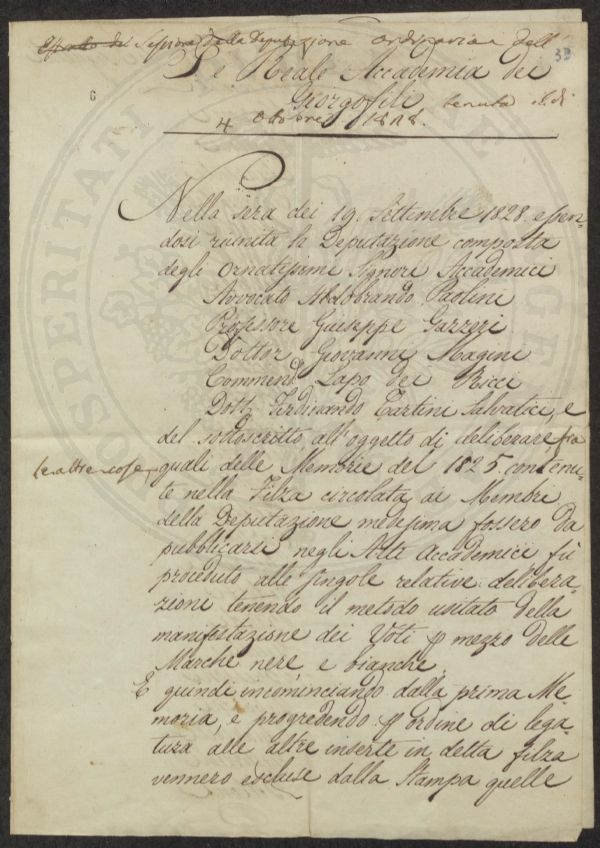 Sessione della Deputazione ordinaria dell'
I. e Reale Accademia dei
Giorgofili tenuta il dì
4
39
6
Nella sera dei 19. Settembre 1828. essen-
dosi riunita la Deputazione composta
degli Ornatissimi Signori Accademici
Avvocato Aldobrando Paolini
Professore Giuseppe Gazzeri
Dottor Giovanni Magini
Commend. Lapo dei Ricci
Dott. Ferdinando Tartini Salvatici, e
del sottoscritto all'oggetto di deliberare, fra
le altre cose, quali delle Memorie del 1825. contenu-
te nella Filza circolata ai Membri
della Deputazione medesima fossero da
pubblicarsi negli Atti Accademici fù
proceduto alle singole relative delibera-
zioni tenendo il metodo usitato della
manifestazione dei Voti p mezzo delle
Marche nere, e bianche.
E quindi incominciando dalla prima Me-
moria, e progredendo p ordine di lega-
tura alle altre inserte in detta filza
vennero escluse dalla Stampa quelle
PROSPERITATI